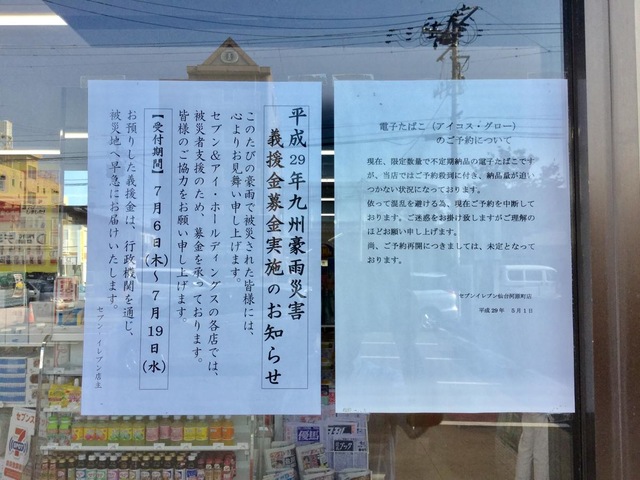 平成29年九州豪雨災害
義援金募金実施のお知らせ
このたびの豪雨で被災された皆様には、
心よりお見舞い申し上げます。
セブン&アイ・ホールディングスの各店では、
被災者支援のため、募金を承っております。
皆様のご協力をお願い申し上げます。
【受付期間】 7月6日(木)～7月19日(水)
お預りした義援金は、行政機関を通じ、
被災地へ早急にお届けいたします。
セブン-イレブン店主
電子たばこ（アイコス・グロー）
のご予約について
現在、限定数量で不定期納品の電子たばこです
が、当店ではご予約殺到に付き、納品量が追い
つかない状況になっております。
依って混乱を避ける為、現在ご予約を中断して
おります。ご迷惑をお掛け致しますがご理解の
ほどお願い申し上げます。
尚、ご予約再開につきましては、未定となって
おります。
平成29年 5月1日
優馬